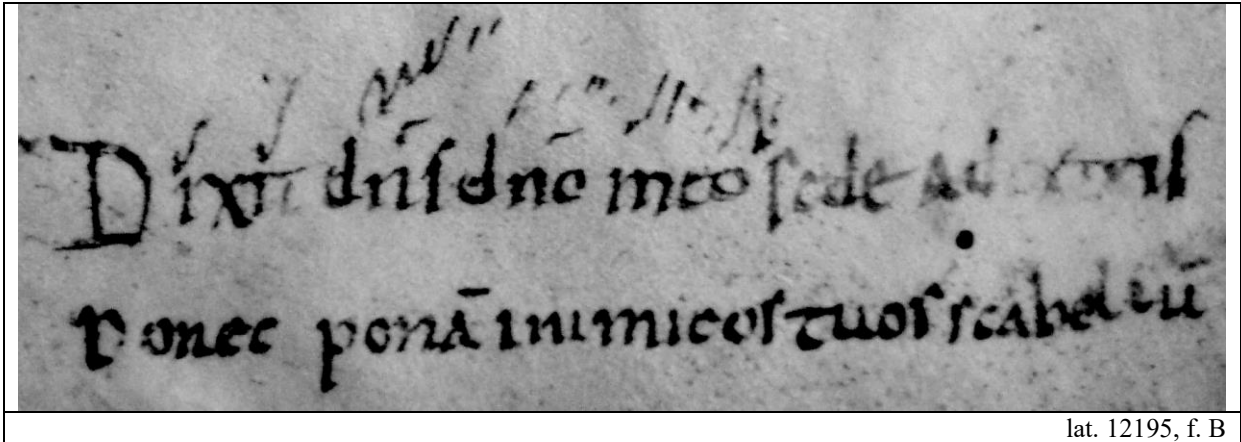 Dixit dn̄s dnō meo sede ad dextris
Donec ponā inimicos tuos scabellū
lat. 12195, f. B